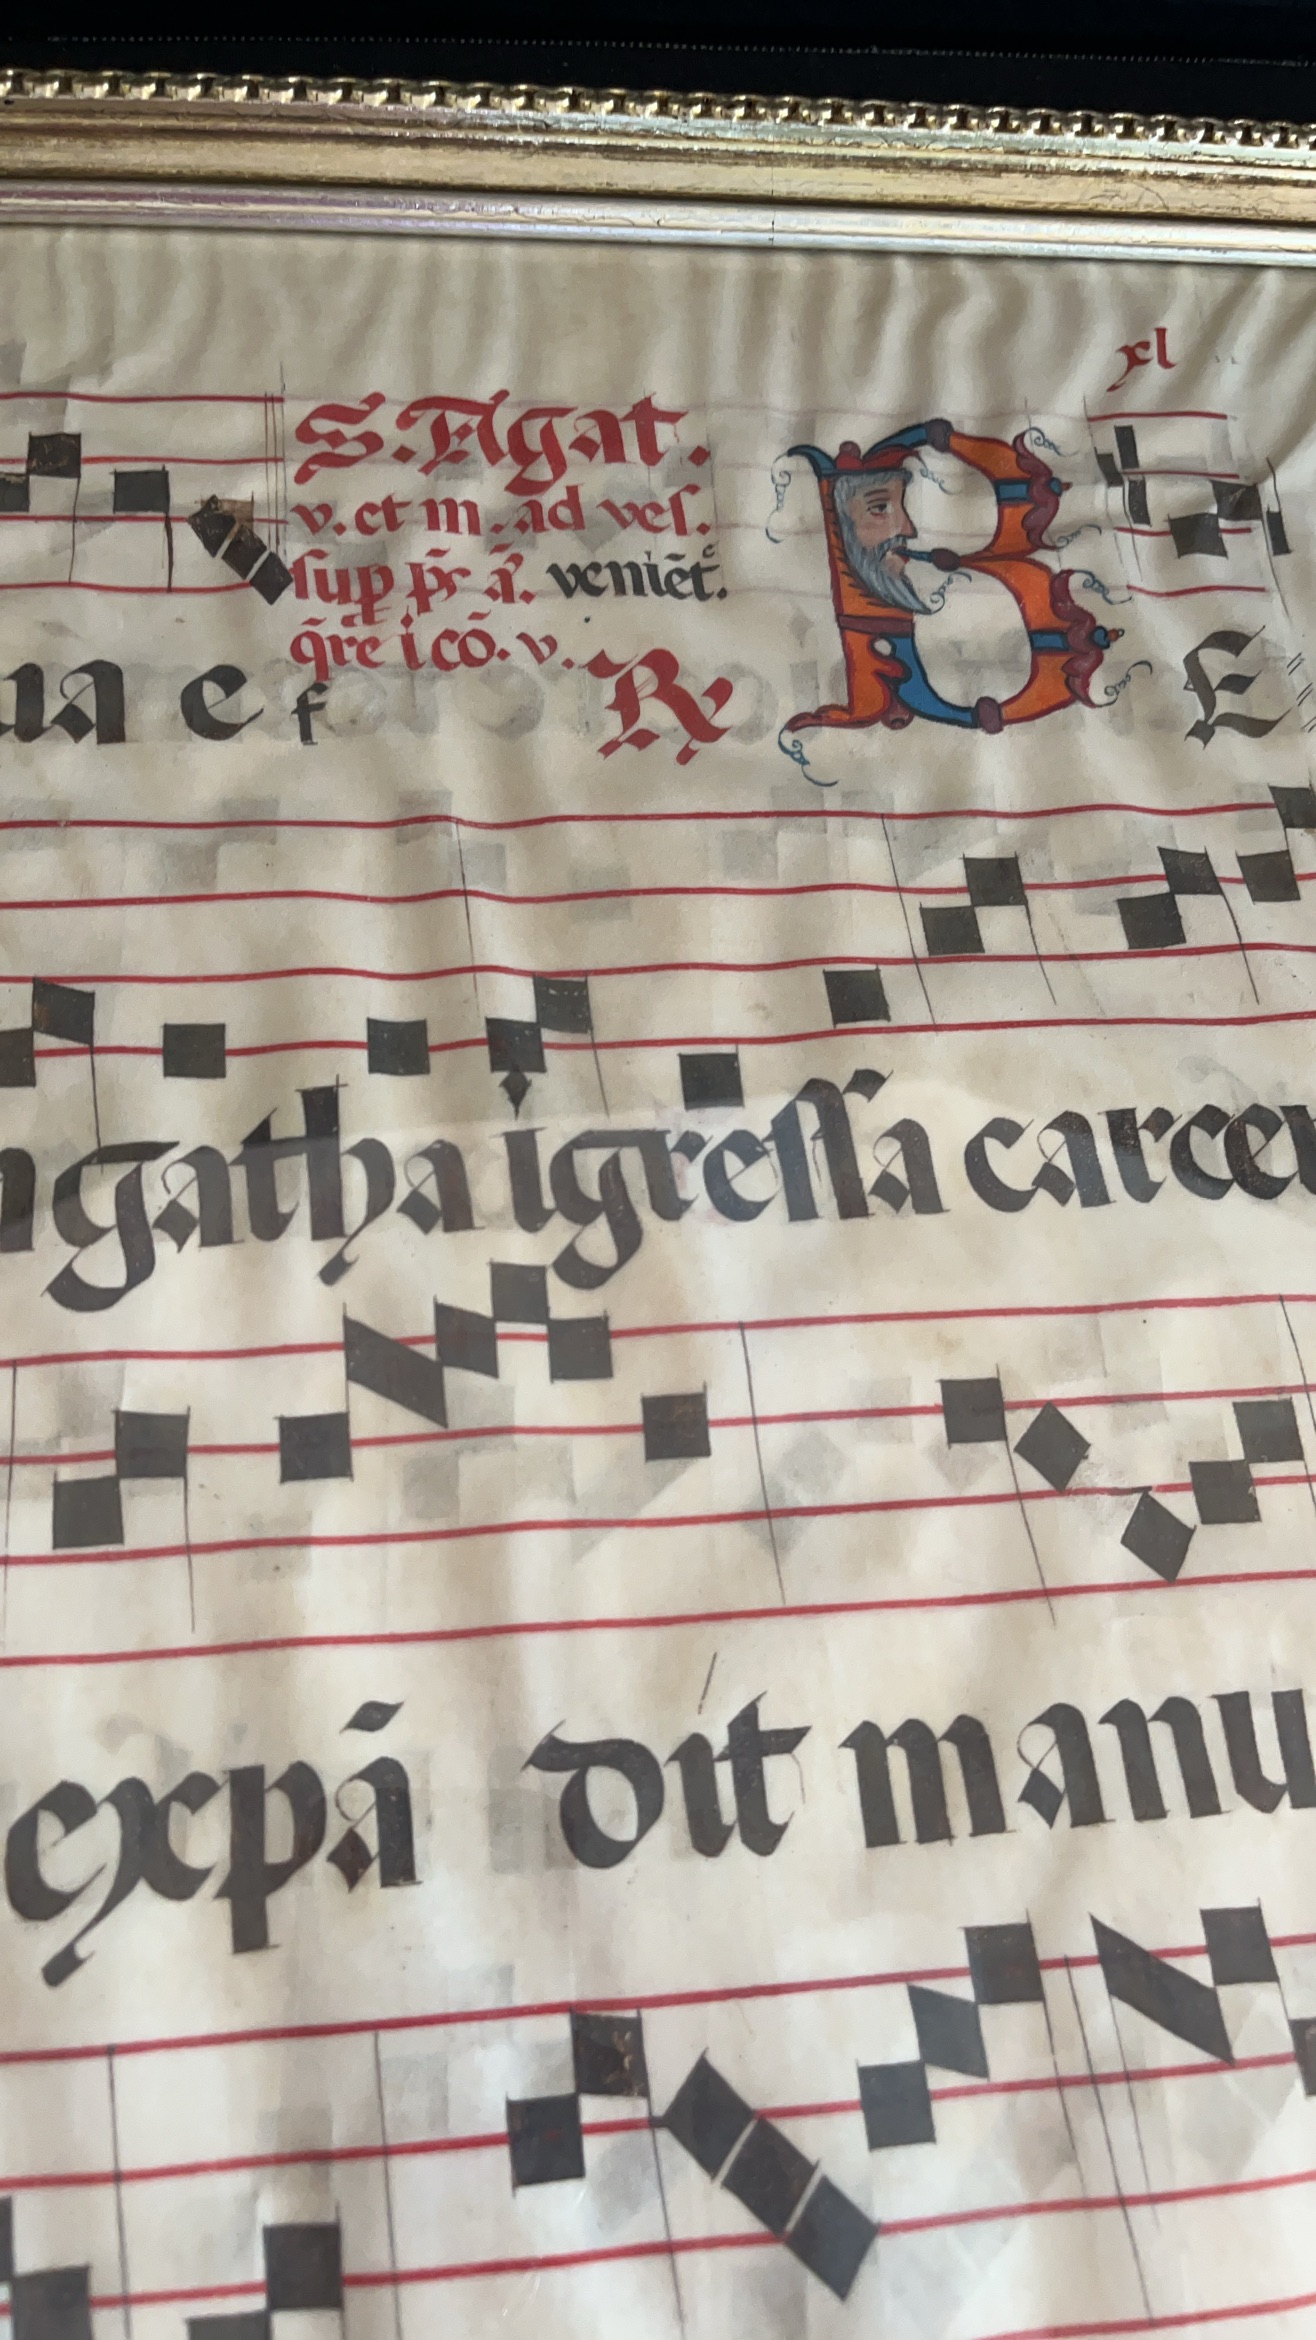 xl
S. Agat.
v. et m. ad vesſ.
ſup p̄s ā. veniēt.
q̄re i cō. v. ℟ B E
ua e f
gatha igreſſa carcer
expā dit manu